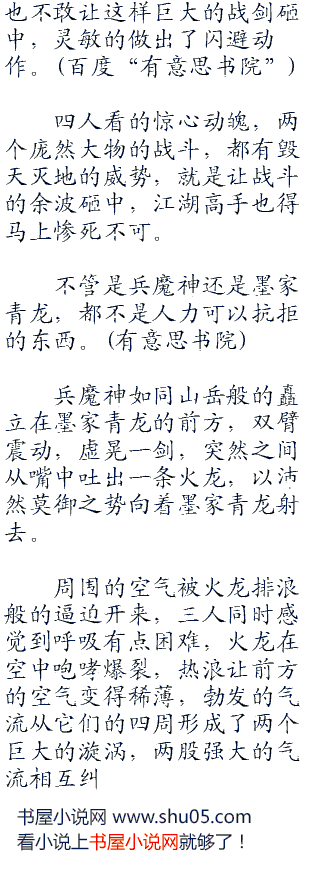 也不敢让这样巨大的战剑砸
中，灵敏的做出了闪避动
作。(百度“有意思书院”)
四人看的惊心动魄，两
个庞然大物的战斗，都有毁
天灭地的威势，就是让战斗
的余波砸中，江湖高手也得
马上惨死不可。
不管是兵魔神还是墨家
青龙，都不是人力可以抗拒
的东西。(有意思书院)
兵魔神如同山岳般的矗
立在墨家青龙的前方，双臂
震动，虚晃一剑，突然之间
从嘴中吐出一条火龙，以沛
然莫御之势向着墨家青龙射
去。
周围的空气被火龙排浪
般的逼迫开来，三人同时感
觉到呼吸有点困难，火龙在
空中咆哮爆裂，热浪让前方
的空气变得稀薄，勃发的气
流从它们的四周形成了两个
巨大的漩涡，两股强大的气
流相互纠
书屋小说网 www.shu05.com
看小说上书屋小说网就够了！